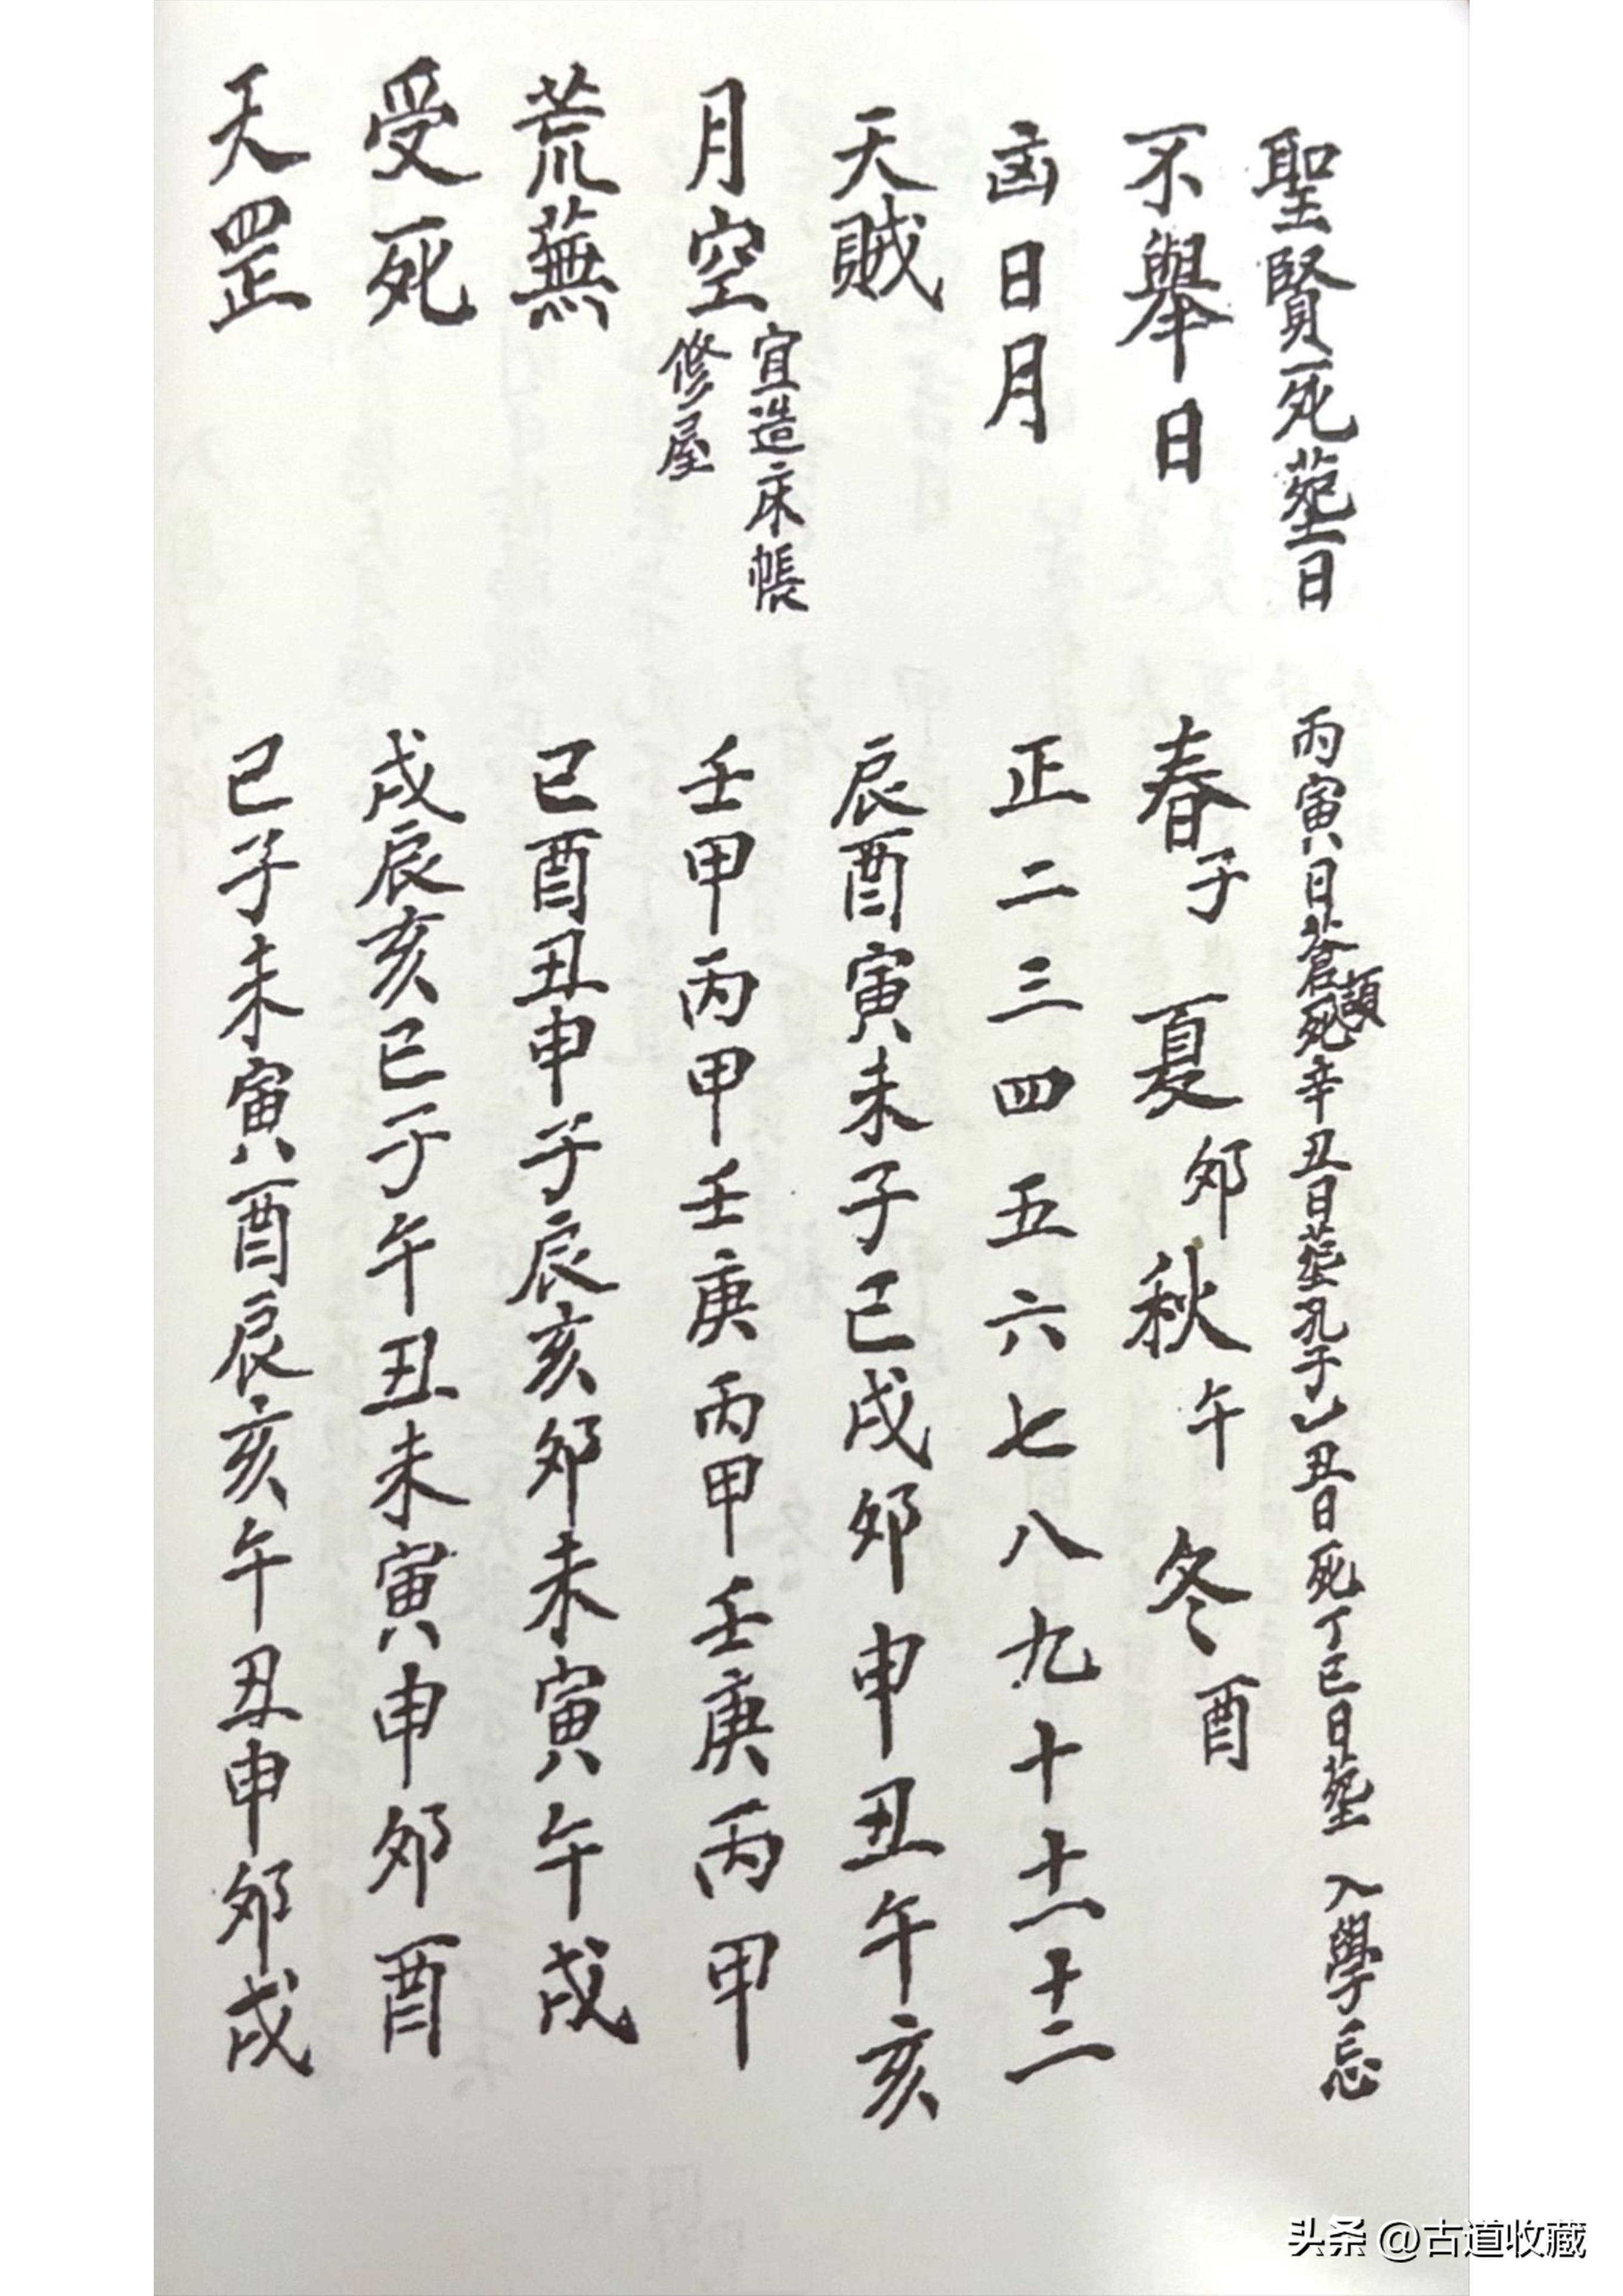 聖賢死塟日 丙寅日蒼頡死辛丑日塟孔子乙丑日死丁巳日塟 入學忌
不舉日 春子 夏夘 秋午 冬酉
凶日月 正二三四五六七八九十十一十二
天賊 辰酉寅未子巳戌夘申丑午亥
月空 宜造床帳修屋 壬甲丙甲壬庚丙甲壬庚丙甲
荒蕪 巳酉丑申子辰亥夘未寅午戌
受死 戌辰亥巳子午丑未寅申夘酉
天罡 巳子未寅酉辰亥午丑申夘戌
头条 @古道收藏